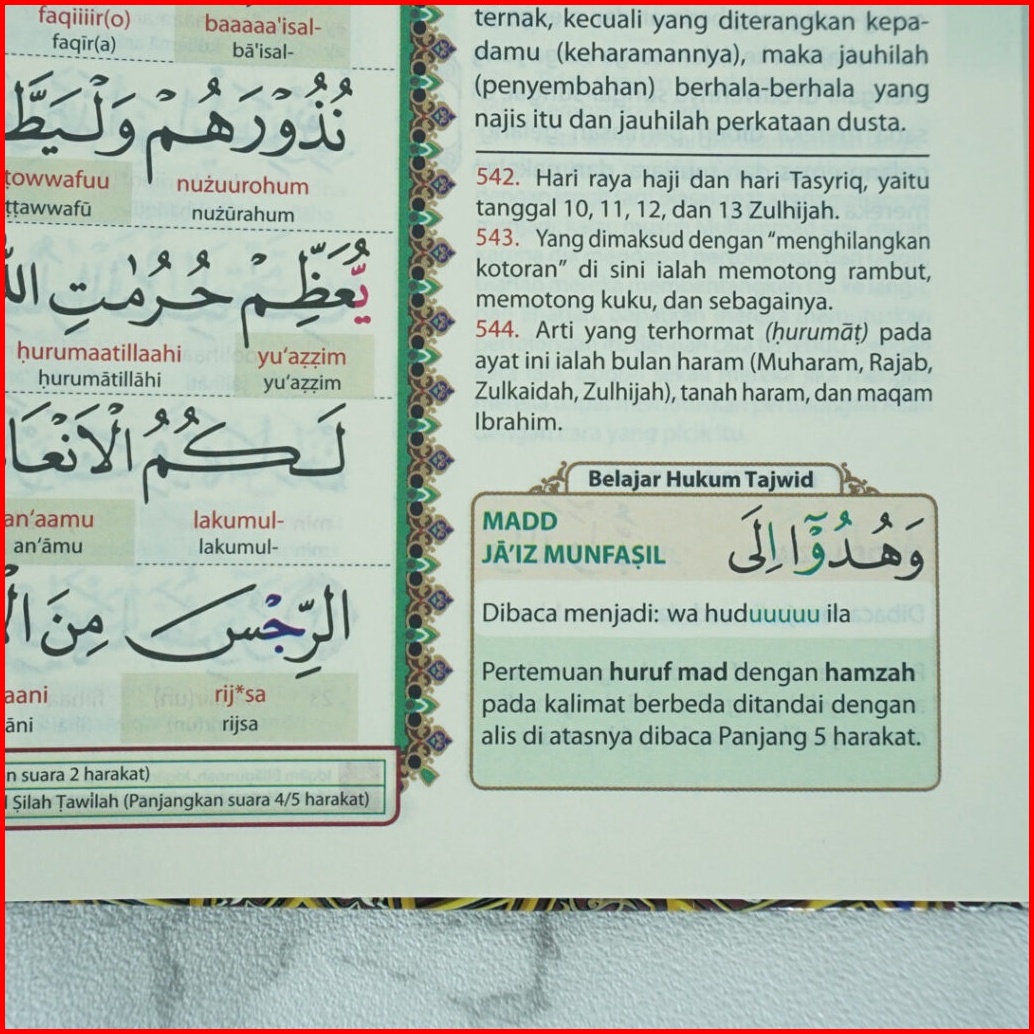 faqiiiir(o) baaaaa'isal-
faqīr(a) bā'isal-
نُذُوْرَهُمْ
ṭowwafuu nużuurohum
ṭṭawwafū nużūrahum
يُّعَظِّمْ حُرُمٰتِ
ḥurumaatillaahi yu‘aẓẓim
ḥurumātillāhi yu‘aẓẓim
لَكُمُ
an‘aamu lakumul-
an‘āmu lakumul-
الرِّجْسَ مِنَ
aani rij*sa
āni rijsa
n suara 2 harakat)
Ṣilah Ṭawīlah (Panjangkan suara 4/5 harakat)
ternak, kecuali yang diterangkan kepa-
damu (keharamannya), maka jauhilah
(penyembahan) berhala-berhala yang
najis itu dan jauhilah perkataan dusta.
542. Hari raya haji dan hari Tasyriq, yaitu
tanggal 10, 11, 12, dan 13 Zulhijah.
543. Yang dimaksud dengan “menghilangkan
kotoran” di sini ialah memotong rambut,
memotong kuku, dan sebagainya.
544. Arti yang terhormat (ḥurumāṭ) pada
ayat ini ialah bulan haram (Muharam, Rajab,
Zulkaidah, Zulhijah), tanah haram, dan maqam
Ibrahim.
Belajar Hukum Tajwid
MADD
JĀ’IZ MUNFAṢIL
وَهُدُوْٓا اِلَى
Dibaca menjadi: wa huduuuuu ila
Pertemuan huruf mad dengan hamzah
pada kalimat berbeda ditandai dengan
alis di atasnya dibaca Panjang 5 harakat.